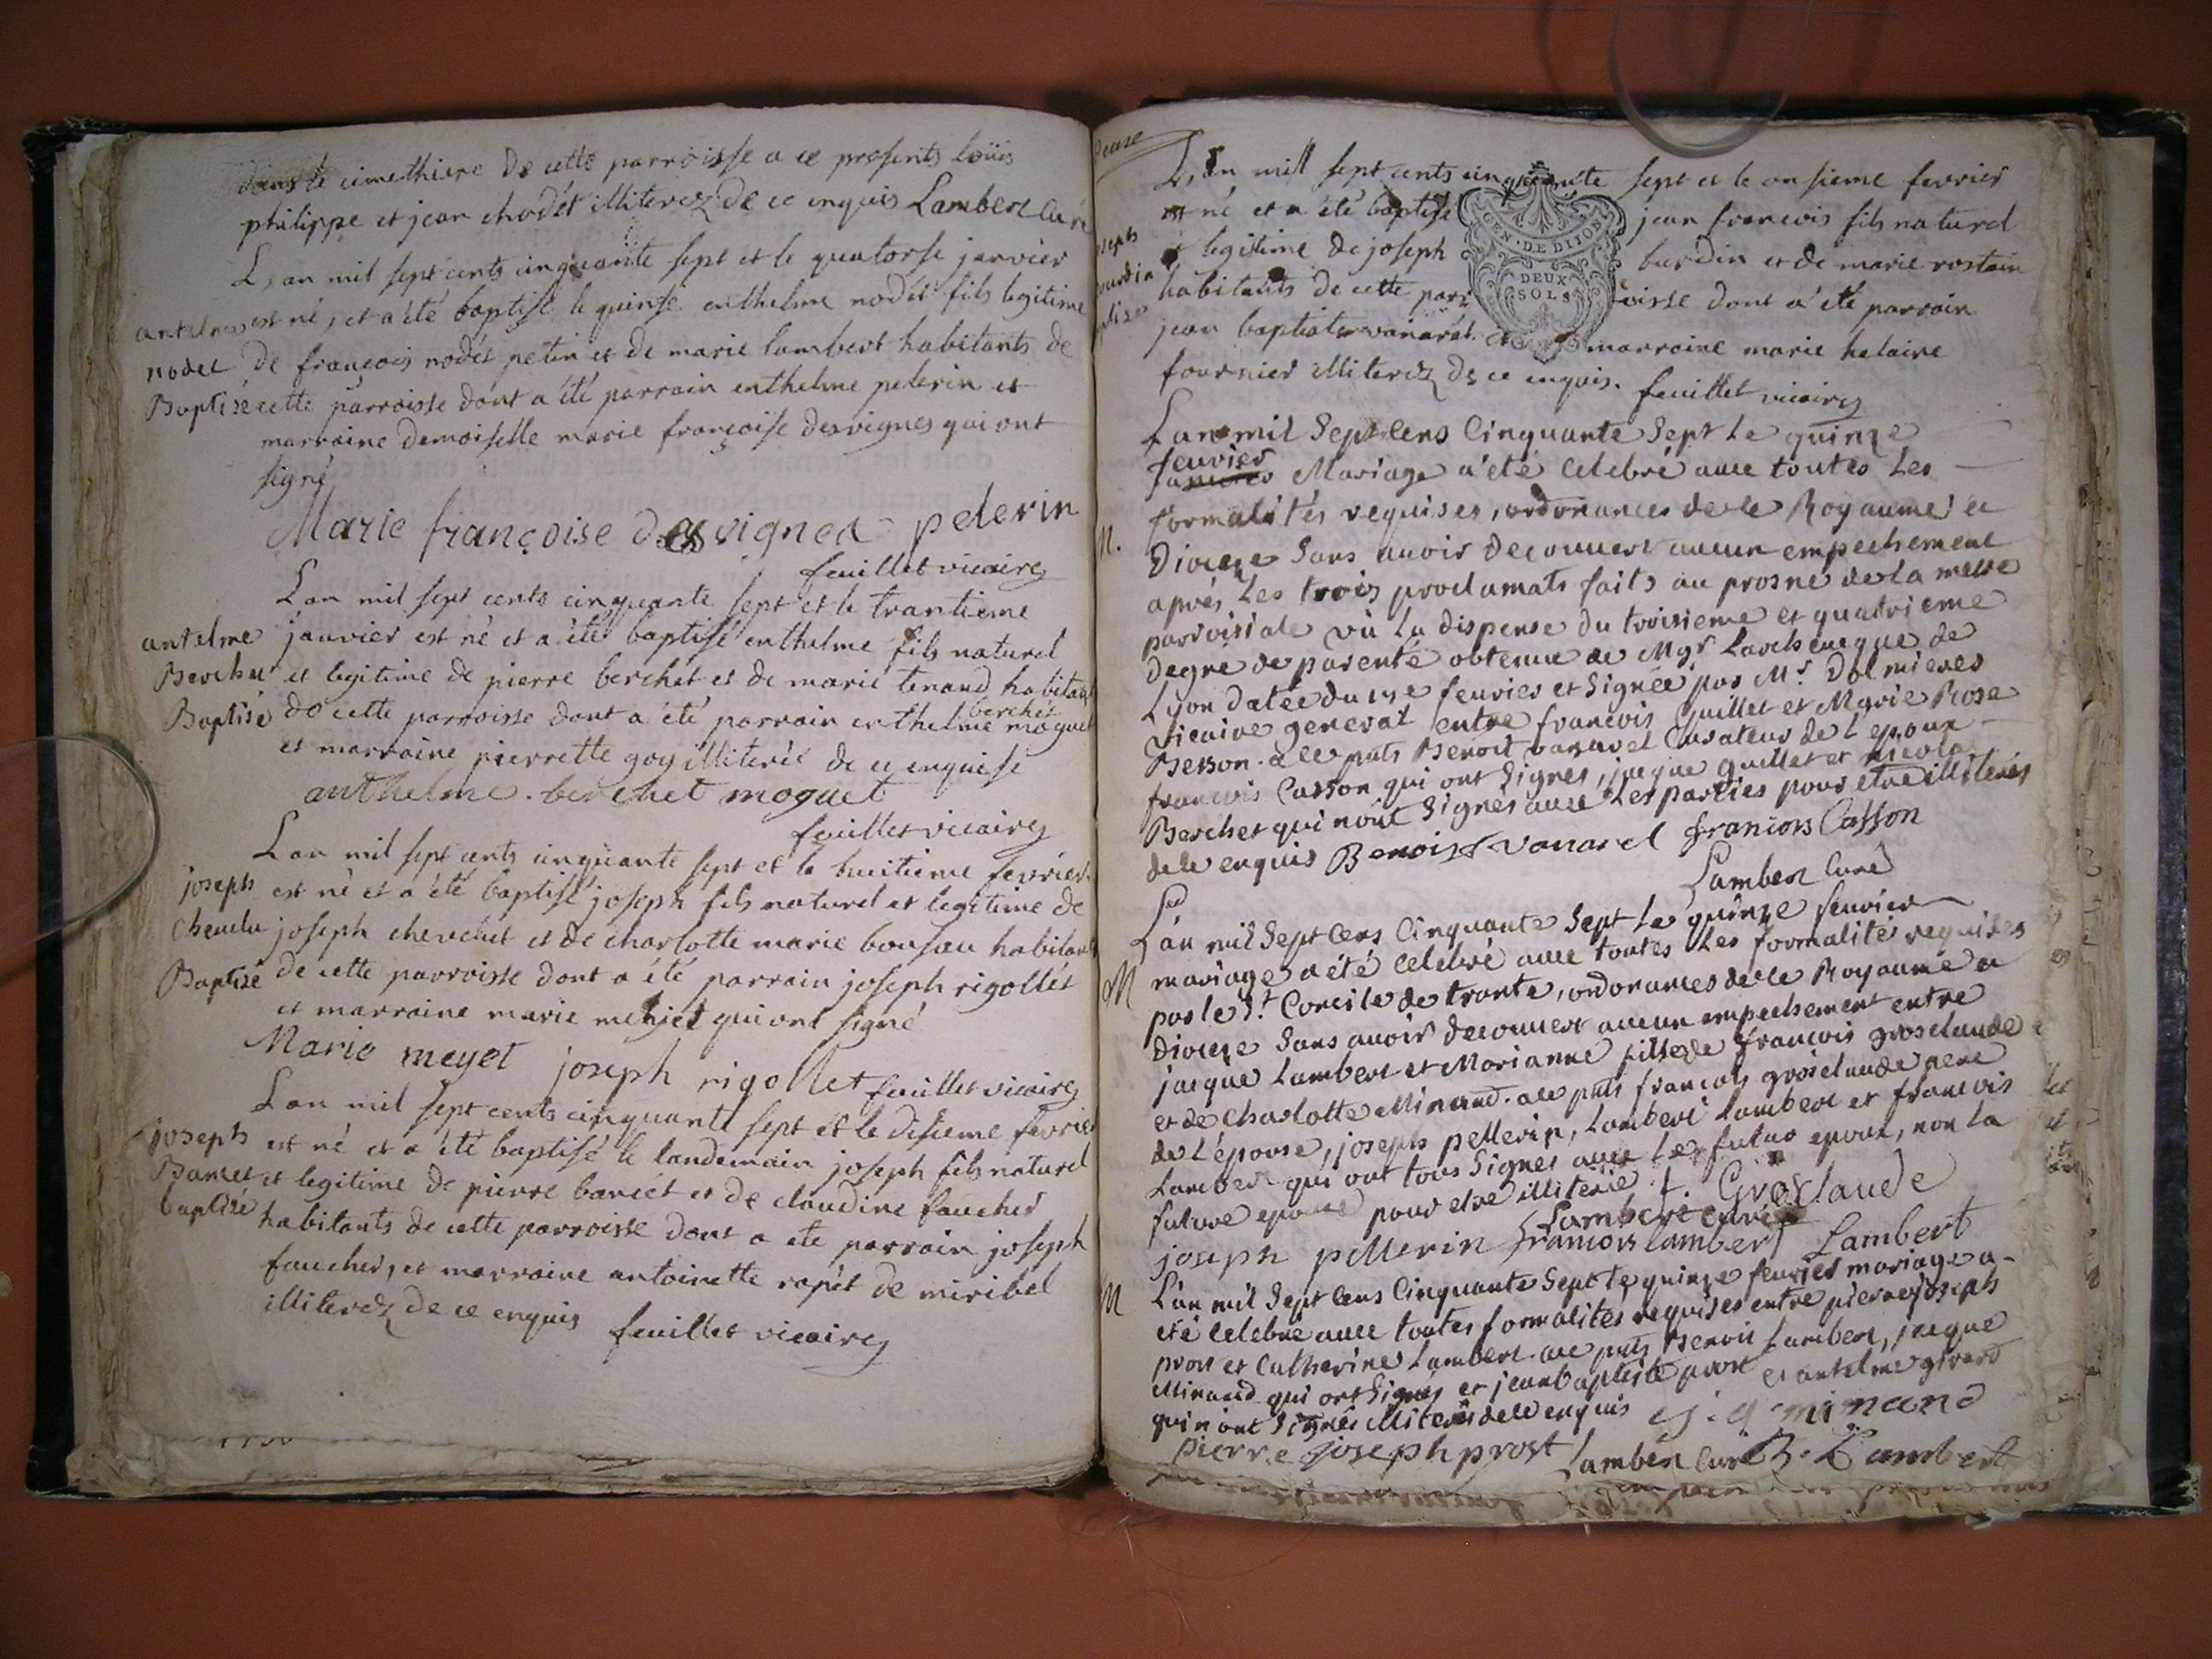 dans le cimethiere de cette parroisse a ce presents loüis
philippe et jean chodét illiterez de ce enquis Lambert Curé
L,an mil sept cents cinquante sept et le quatorse janvier
est né, et a été baptisé le quinse enthelme nodét fils legitime
antelme
nodet
Baptisé
de françois nodét petin et de marie lambert habitants de
cette parroisse dont a été parrain enthelme pelerin et
marraine demoiselle marie françoise desvignes qui ont
signé
Marie françoise desvignes pelerin
feuillet vicaire
Lan mil sept cents cinquante sept et le trantieme
janvier est né et a été baptisé enthelme fils naturel
antelme
Berchet
Baptisé
et legitime de pierre berchet et de marie tenand habitants
de cette parroisse dont a été parrain enthelme berchét moguet
et marraine pierrette goy illiterée de ce enquise
anthelme . berchet moguet
feuillet vicaire
Lan mil sept cents cinquante sept et le huitieme fevrier
est né et a été baptisé joseph fils naturel et legitime de
joseph
Baptisé
joseph chevelut et de charlotte marie bonsau habitants
de cette parroisse dont a été parrain joseph rigollét
et marraine marie mejet qui ont signé
Marie meyet joseph rigollet feuillet vicaire
Lan mil sept cents cinquante sept et le disieme fevrier
est né et a été baptisé le landemain joseph fils naturel
joseph
Bancet
baptisé
et legitime de pierre bancét et de claudine faucher
habitants de cette parroisse dont a ete parrain joseph
faucher, et marraine antoinette rapét de miribel
illiterez de ce enquis feuillet vicaire
L,an mill sept cents cinquante sept et le onsieme fevrier
est né et a été baptisé jean francois fils naturel
et legitime de joseph burdin et de marie rostain
habitants de cette parroisse dont a été parrain
jean baptiste vanarét et marraine marie helaire
fournier illiterez de ce enquis. feuillet vicaire
GEN · DE DIJON
DEUX
SOLS
Lan mil Sept Cens Cinquante Sept Le quinze
feuvrier
Mariage a été Celebré avec toutes Les
formalités requises, ordonances de le Royaume et
M.
Dioceze Sans avoir decouvert aucun empechement
aprés Les trois proclamats faits au prosne de la messe
parroisiale vû La dispense du troisieme et quatrieme
degré de parenté obtenue de Mgr Larcheveque de
Lyon datée du feuvrier et Signée par Mr. Dolmieres
Vicaire general entre francois Guillet et Marie Rose
Besson. a ce pnts Benoit vanarel Curateur de L'epoux
francois Casson qui ont Signés, jacque guillet et nicola
Berchet qui nont Signés avec Les parties pour etre illiterés
de le enquis Benoist Vanarel francois Casson
Lambert Curé
L'an mil Sept Cens Cinquante Sept Le quinze feuvrier
mariage a été Celebré avec toutes Les formalités requises
M
par le St. Concile de trante, ordonances de le Royaume et
Dioceze Sans avoir decouvert aucun empechement entre
jacque Lambert et Marianne fille de francois grosclaude
et de Charlotte Minand. a ce pnts francois grosclaude pere
de L'épouse, joseph pellerin, Lambert Lambert et francois
Lambert qui ont tous Signés avec Le futur epoux, non La
future epouse pour etre illiterée. f. Grosclaude
Lambert curé
joseph pellerin francois lambert Lambert
L'an mil Sept Cens Cinquante Sept Le quinze feuvrier mariage a
M
été Celebré avec toutes formalités requises entre pierre joseph
prost et Catherine Lambert. a ce pnts Benoit Lambert, jacque
Minand qui ont Signés et jean baptiste prost et antelme girard
qui nont Signés illiterés de le enquis minand
pierre joseph prost Lambert Curé B. Lambert